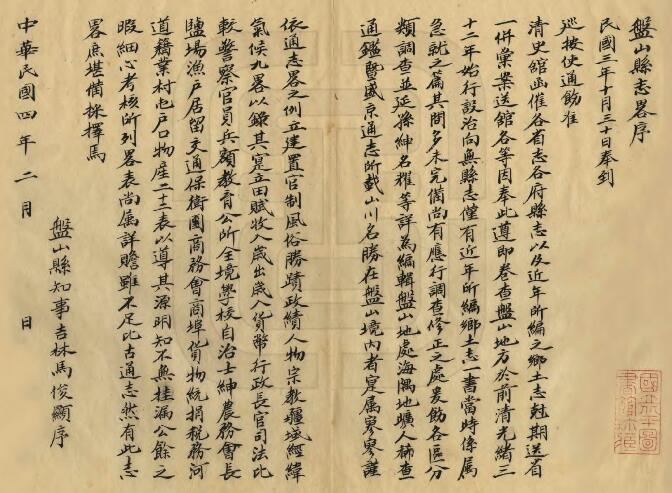 盤山縣志畧序
民國三年十月三十日奉到
巡按使通飭准
清史館函催各省志各府縣志以及近年所編之鄉土志尅期送省
一併彙案送館各等因奉此遵即卷查盤山地方於前清光緒三
十二年始行設治向無縣志僅有近年所編鄉土志一書當時係屬
急就之篇其間多未完備尚有應行調查修正之處爰飭各區分
類調查並延孫紳名耀等詳為編輯盤山地處海隅地曠人稀查
通鑑暨盛京通志所載山川名勝在盤山境内者寔属寥寥謹
依通志畧之例立建置官制風俗勝蹟政績人物宗教疆域經緯
氣候九畧以錄其寔立田賦收入歲出歲入貨幣行政長官司法比
較警察官員兵額教育公所全境學校自治士紳農務會長
鹽塲漁戶居留交通保衛團商務會商埠貨物統捐稅務河
道礦業村屯戶口物產二十二表以導其源明知不無挂漏公餘之
暇細心考核所列畧表尚属詳贍雖不足比古通志然有此志
畧庶堪備採擇焉
盤山縣知事吉林馬俊顯序
中華民國四年二月 日
國立北平圖書館珍藏